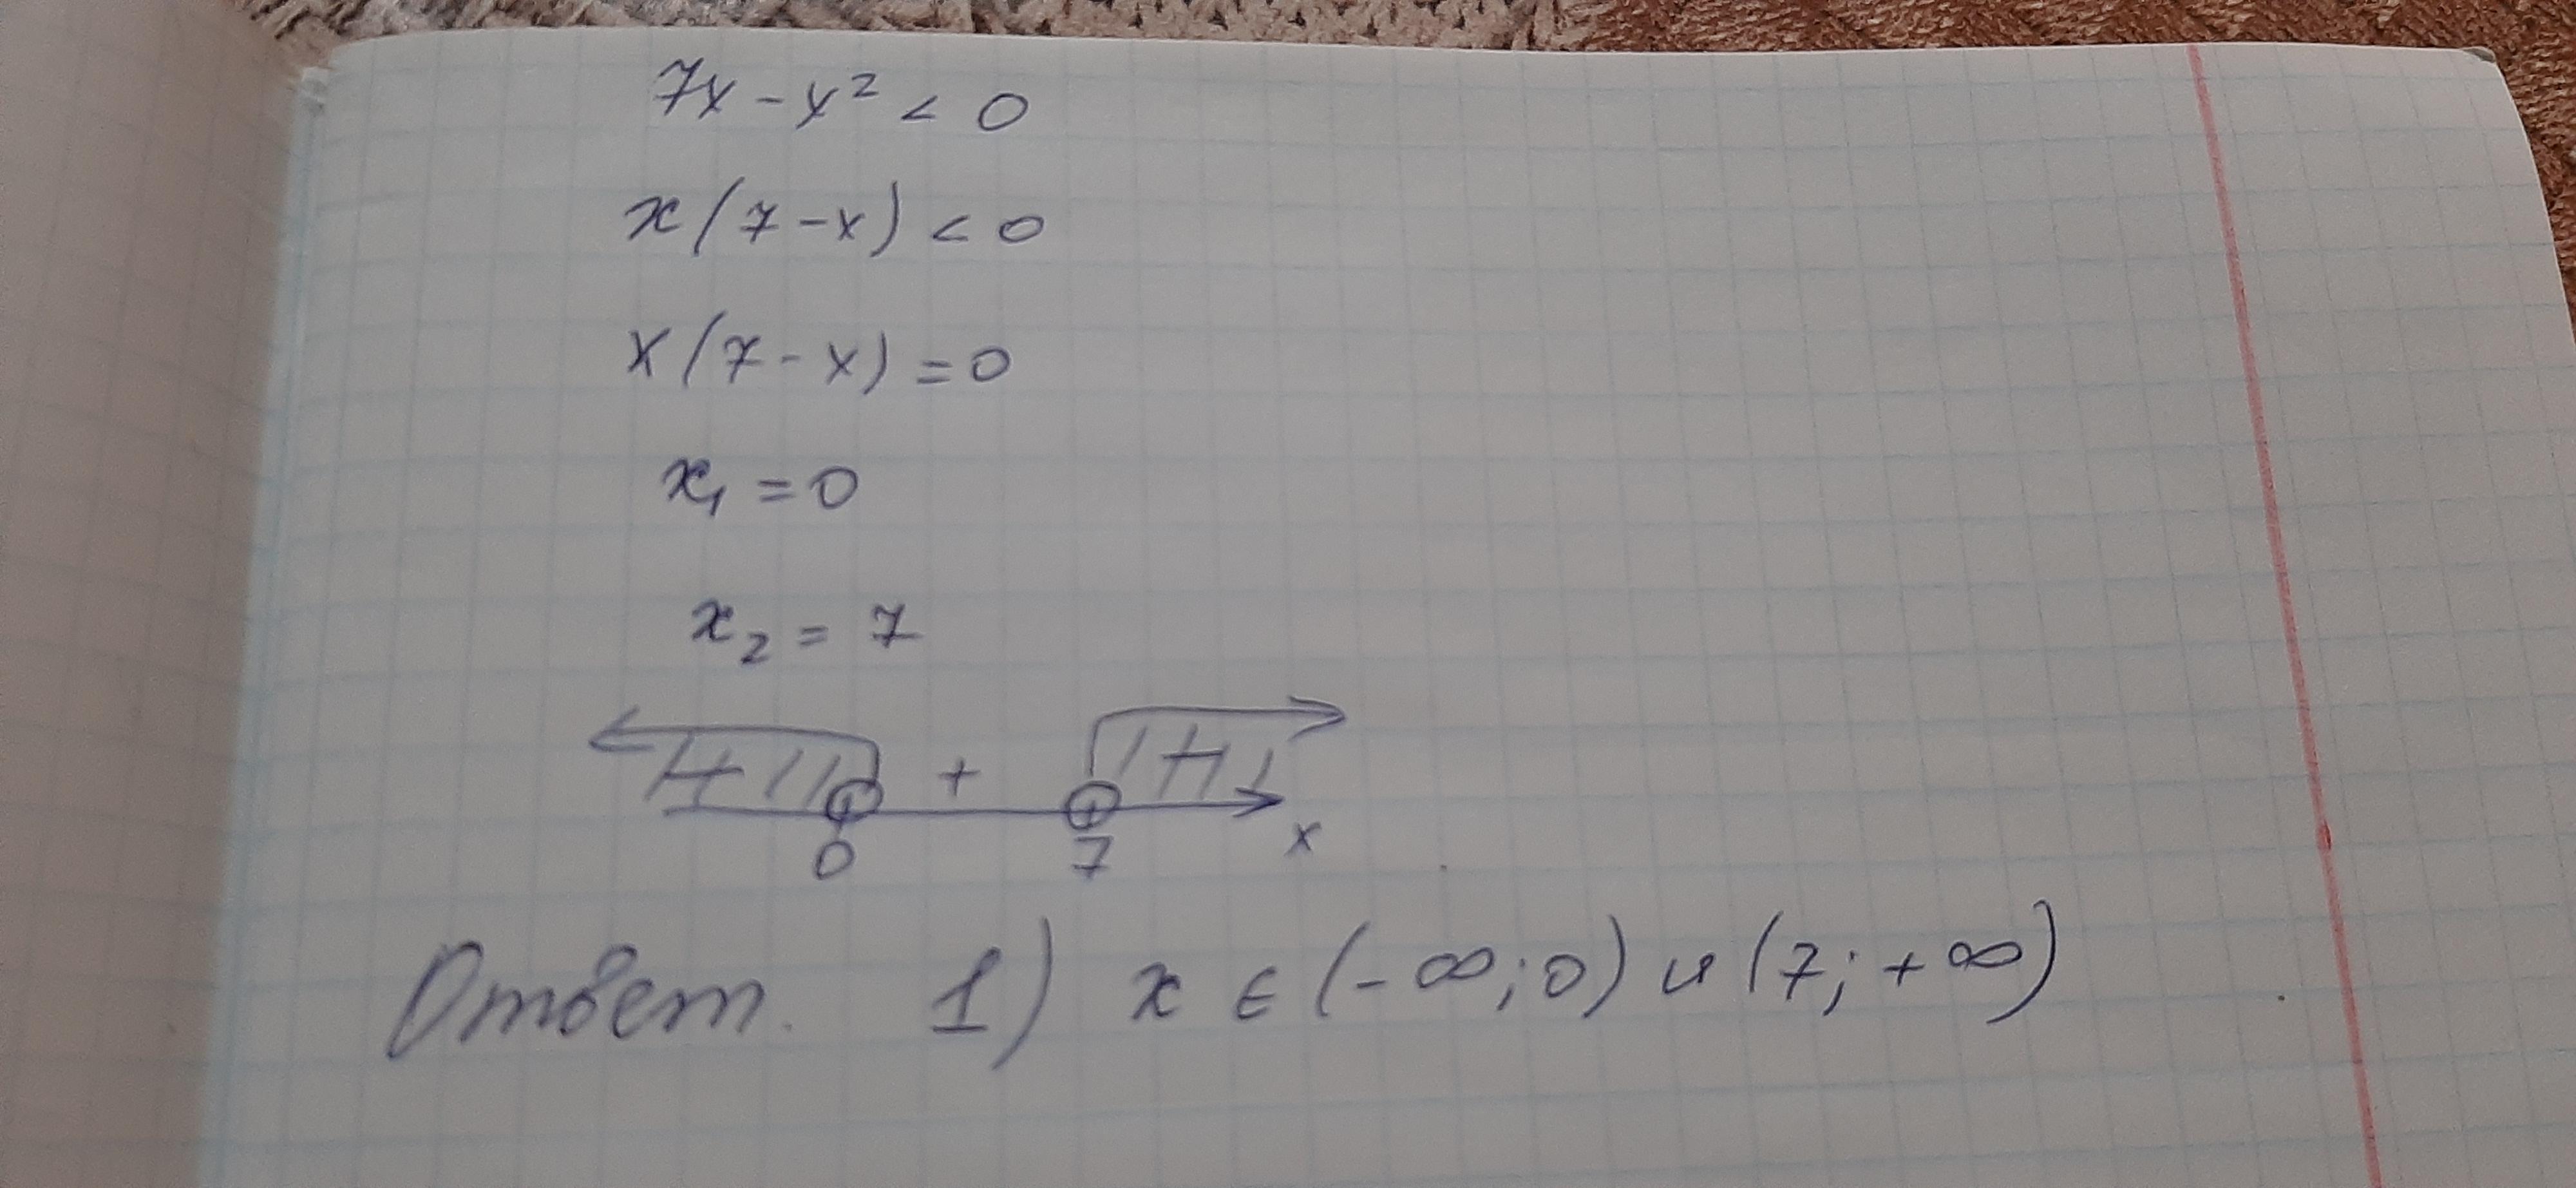 7x - x² < 0
x(7-x) < 0
x(7-x) = 0
x₁ = 0
x₂ = 7
- + -
0 7 x
Ответ. 1) x ∈ (-∞; 0) и (7; +∞)